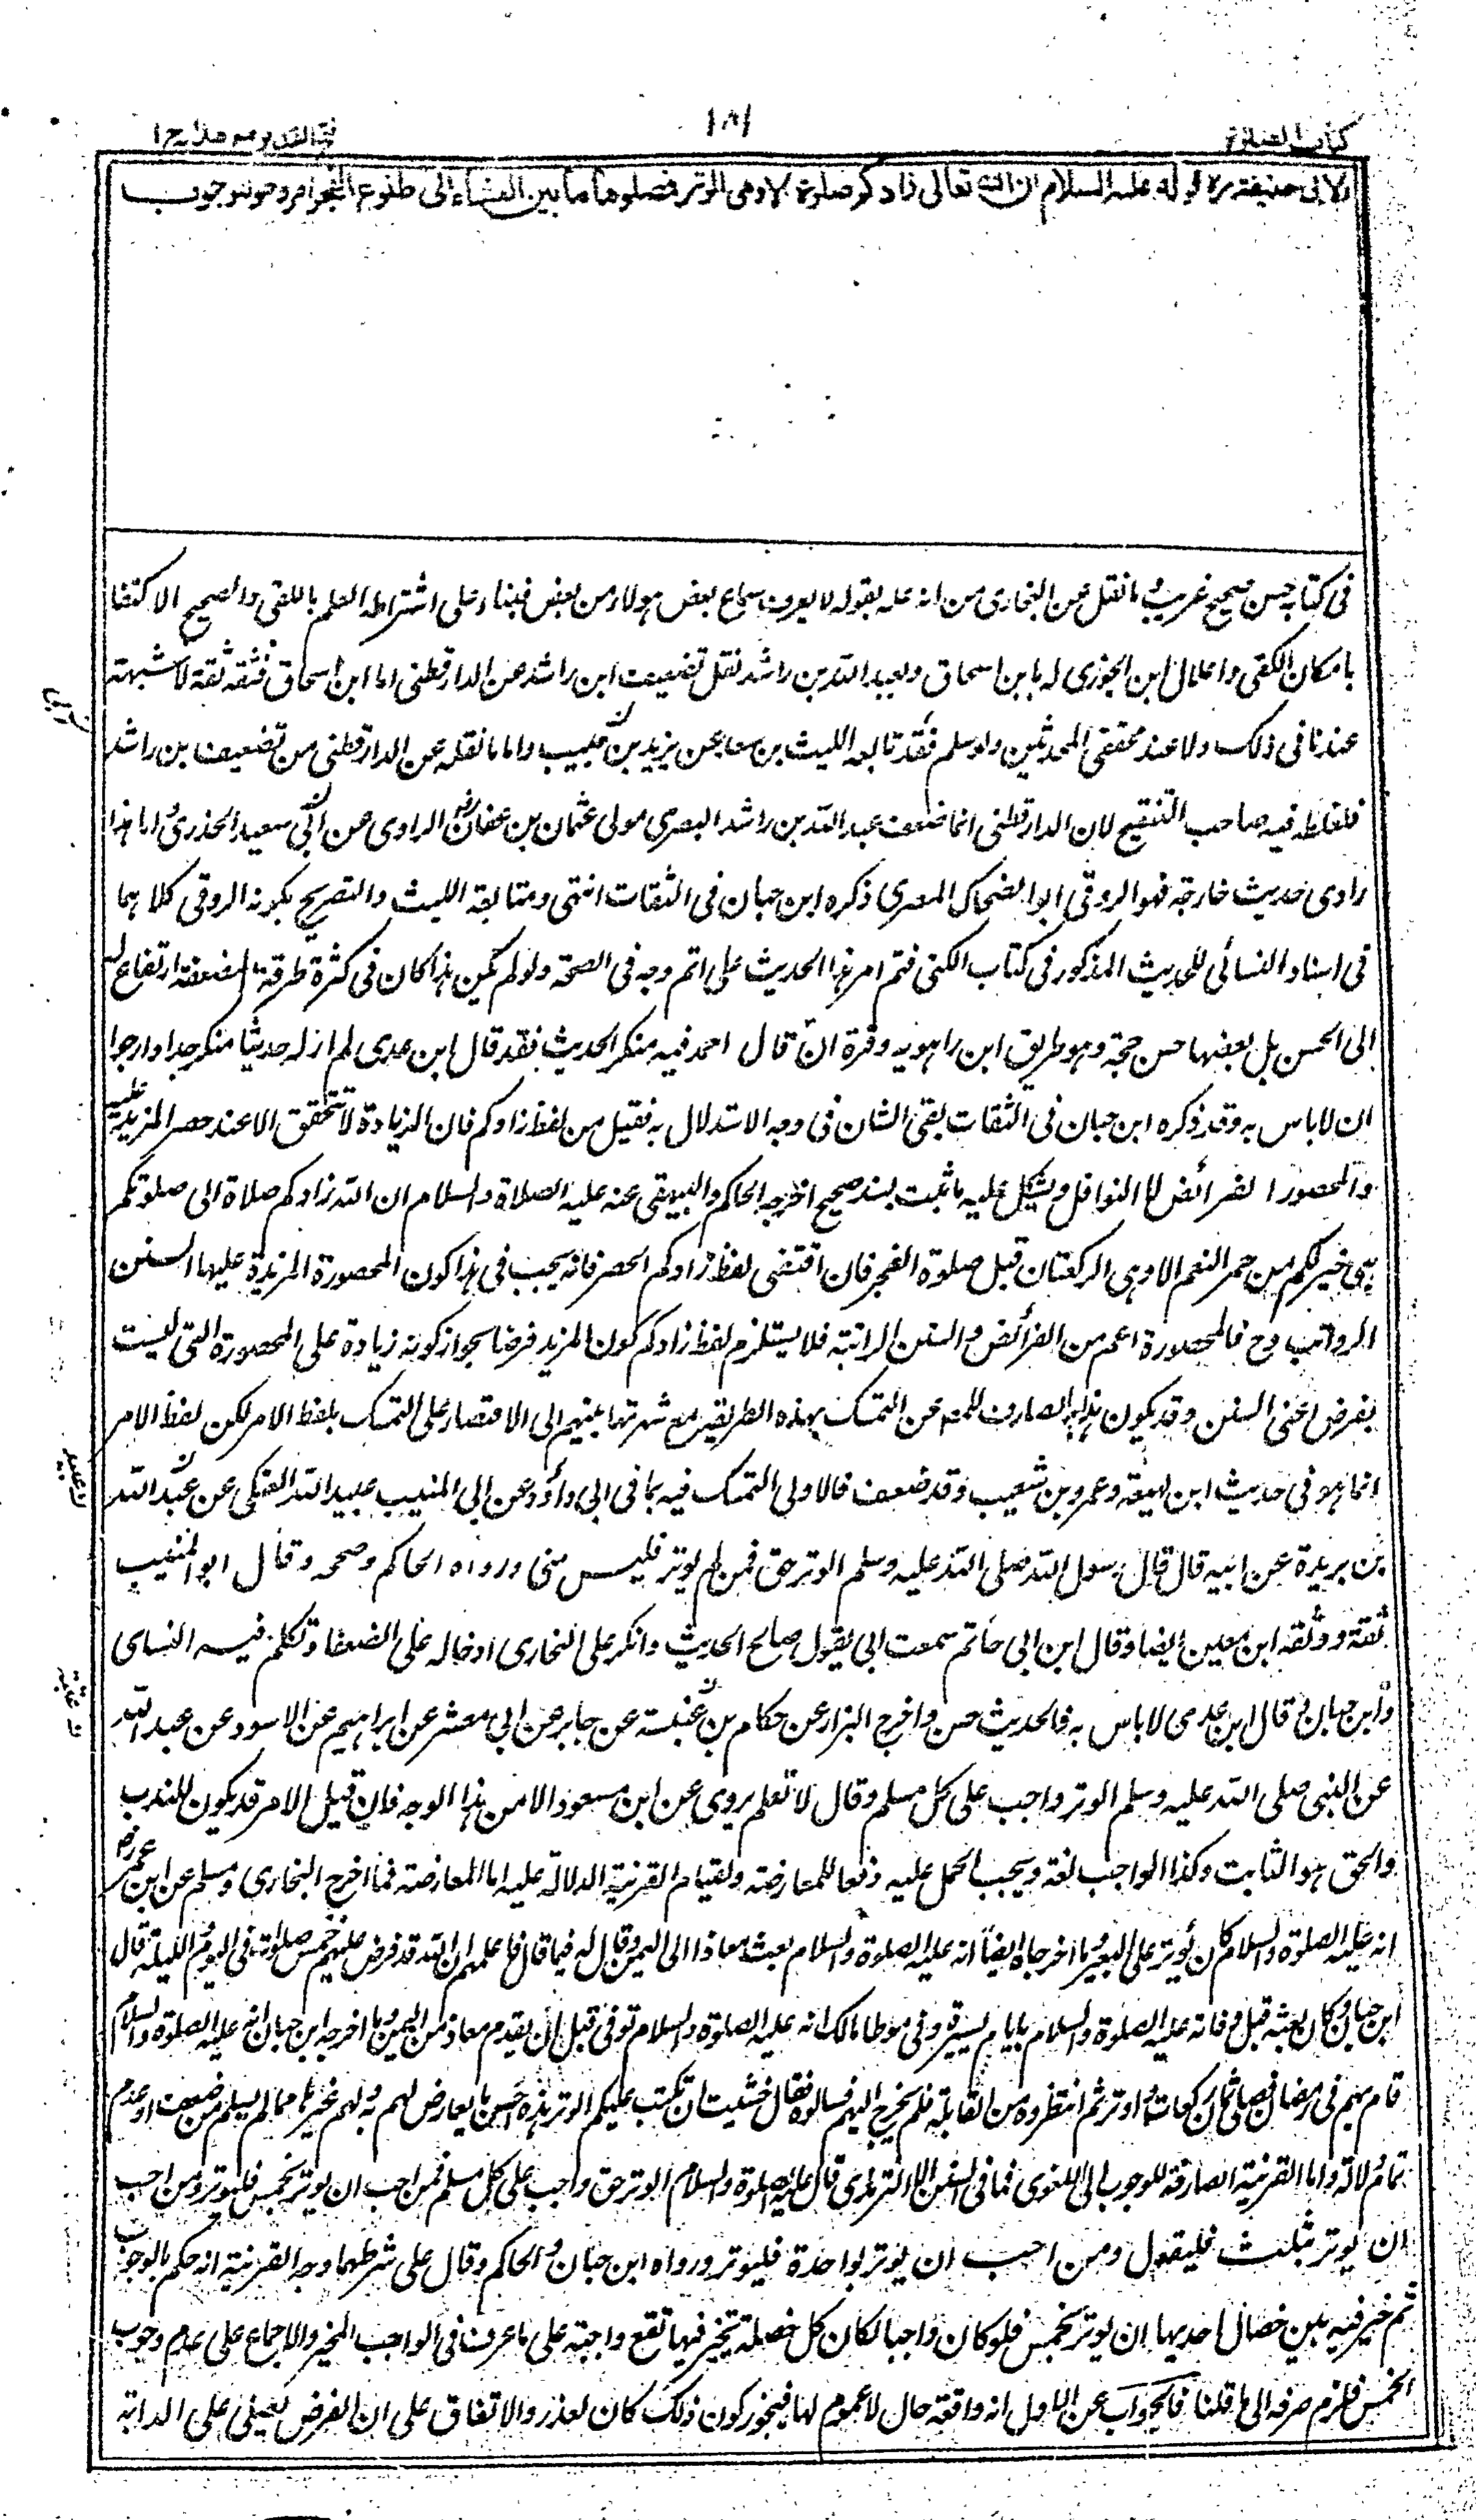 كتاب الصلوة
١٨١
فتح القدير مع هداية ج ١
ولابى حنيفة رح قوله عليه السلام ان الله تعالى زادكم صلوة الا وهى الوتر فصلوها ما بين العشاء الى طلوع الفجر امر وهو للوجوب
فى كتابه حسن صحيح غريب وما نقل عن البخارى من انه عله بقوله لا يعرف سماع بعض هولاء من بعض فبناء على اشتراطه العلم باللقى والصحيح الاكتفا
بامكان اللقى واعلال ابن الجوزى له بابن اسحاق وبعبد الله بن راشد نقل تضعيف ابن راشد عن الدارقطنى اما ابن اسحاق فثقة ثقة لا شبهة
عندنا فى ذلك ولا عند محققى المحدثين ولو سلم فقد تابعه الليث بن سعد عن يزيد بن حبيب واما ما نقله عن الدارقطنى من تضعيف بن راشد
فغلطه فيه صاحب التنقيح لان الدارقطنى انما ضعف عبد الله بن راشد البصرى مولى عثمان بن عفان رض الراوى عن ابى سعيد الخدرى واما هذا
راوى حديث خارجة فهو الزوفى ابو الضحاك المصرى ذكره ابن حبان فى الثقات انتهى ومتابعة الليث والتصريح بكونه الزوفى كلاهما
فى اسناد النسائى للحديث المذكور فى كتاب الكنى فتم امر هذا الحديث على اتم وجه فى الصحة ولو لم يكن هذا كان فى كثرة طرقه المضعفة ارتفاع له
الى الحسن بل بعضها حسن حجة وهو طريق ابن راهويه وقرة ان قال احمد فيه منكر الحديث فقد قال ابن عدى لم ار له حديثا منكر جدا وارجوا
ان لا باس به وقد ذكره ابن حبان فى الثقات بقى الشان فى وجه الاستدلال به فقيل من لفظ زادكم فان الزيادة لا تتحقق الا عند حصر المزيد عليه
والمحصورا الفرائض لا النوافل ويشكل عليه ما ثبت بسند صحيح اخرجه الحاكم والبيهقى عنه عليه الصلاة والسلام ان الله زادكم صلاة الى صلوتكم
هى خير لكم من حمر النعم الا وهى الركعتان قبل صلوة الفجر فان اقتضى لفظ زادكم الحصر فانه يجب فى هذا كون المحصورة المزيدة عليها السنن
الرواتب وح فالمحصورة اعم من الفرائض والسنن الراتبة فلا يستلزم لفظ زادكم كون المزيد فرضا بجواز كونه زيادة على المحصورة التى ليست
بفرض اعنى السنن وقد يكون هذا هو الصارف للمص عن التمسك بهذه الطريقة مع شهرتها بينهم الى الاقتصار على التمسك بلفظ الامر لكن لفظ الامر
انما هو فى حديث ابن لهيعة وعمرو بن شعيب وقد ضعف فالاولى التمسك فيه بما فى ابى داؤد عن ابى المنيب عبيد الله العتكى عن عبد الله
بن بريدة عن ابيه قال قال رسول الله صلى الله عليه وسلم الوتر حق فمن لم يوتر فليس منى ورواه الحاكم وصححه وقال ابو المنيب
ثقة ووثقه ابن معين ايضا وقال ابن ابى حاتم سمعت ابى يقول صالح الحديث وانكر على البخارى ادخاله على الضعفا وتكلم فيه النساى
وابن حبان وقال ابن عدى لا باس به فالحديث حسن واخرج البزار عن حكام بن عنبسة عن جابر عن ابى معشر عن ابراهيم عن الاسود عن عبد الله
عن النبى صلى الله عليه وسلم الوتر واجب على كل مسلم وقال لا نعلم يروى عن ابن مسعود الا من هذا الوجه فان قيل الامر قد يكون للندب
والحق هو الثابت وكذا الواجب لغة ويجب الحمل عليه دفعا للمعارضة ولقيام القرنية الدلالة عليه اما المعارضة فما اخرج البخارى ومسلم عن ابن عمر رض
انه عليه الصلوة والسلام كان يوتر على البعير وما اخرجاه ايضا انه عليه الصلوة والسلام بعث معاذا الى اليمن وقال له فيما قال فاعلمهم ان الله قد فرض عليهم خمس صلوات فى اليوم والليلة قال
ابن حبان وكان بعثه قبل وفاته عليه الصلوة والسلام بايام يسيرة وفى موطا مالك انه عليه الصلوة والسلام توفى قبل ان يقدم معاذ من اليمن وما اخرجه ابن حبان انه عليه الصلوة والسلام
قام بهم فى رمضان فصلى ثمان ركعات واوتر ثم انتظروه من القابلة فلم يخرج اليهم فسالوه فقال خشيت ان تكتب عليكم الوتر هذه احسن ما يعارض لهم به ولهم غيرها مما لم يسلم من ضعف او عدم
تمام دلالة واما القرنية الصارفة للوجوب الى اللغوى فما فى السنن الا الترمذى قال عليه الصلوة والسلام الوتر حق واجب على كل مسلم فمن احب ان يوتر بخمس فليوتر ومن احب
ان يوتر بثلث فليفعل ومن احب ان يوتر بواحدة فليوتر ورواه ابن حبان والحاكم وقال على شرطهما وجه القرنية انه حكم بالوجوب
ثم خير فيه بين خصال احديها ان يوتر بخمس فلو كان واجبا لكان كل خصلة تخير فيها تقع واجبة على ما عرف فى الواجب المخير والاجماع على عدم وجوب
الخمس فلزم صرفه الى ما قلنا فالجواب عن الاول انه واقعة حال لا عموم لها فيجوز كون ذلك كان لعذر والاتفاق على ان الفرض يصلى على الدابة